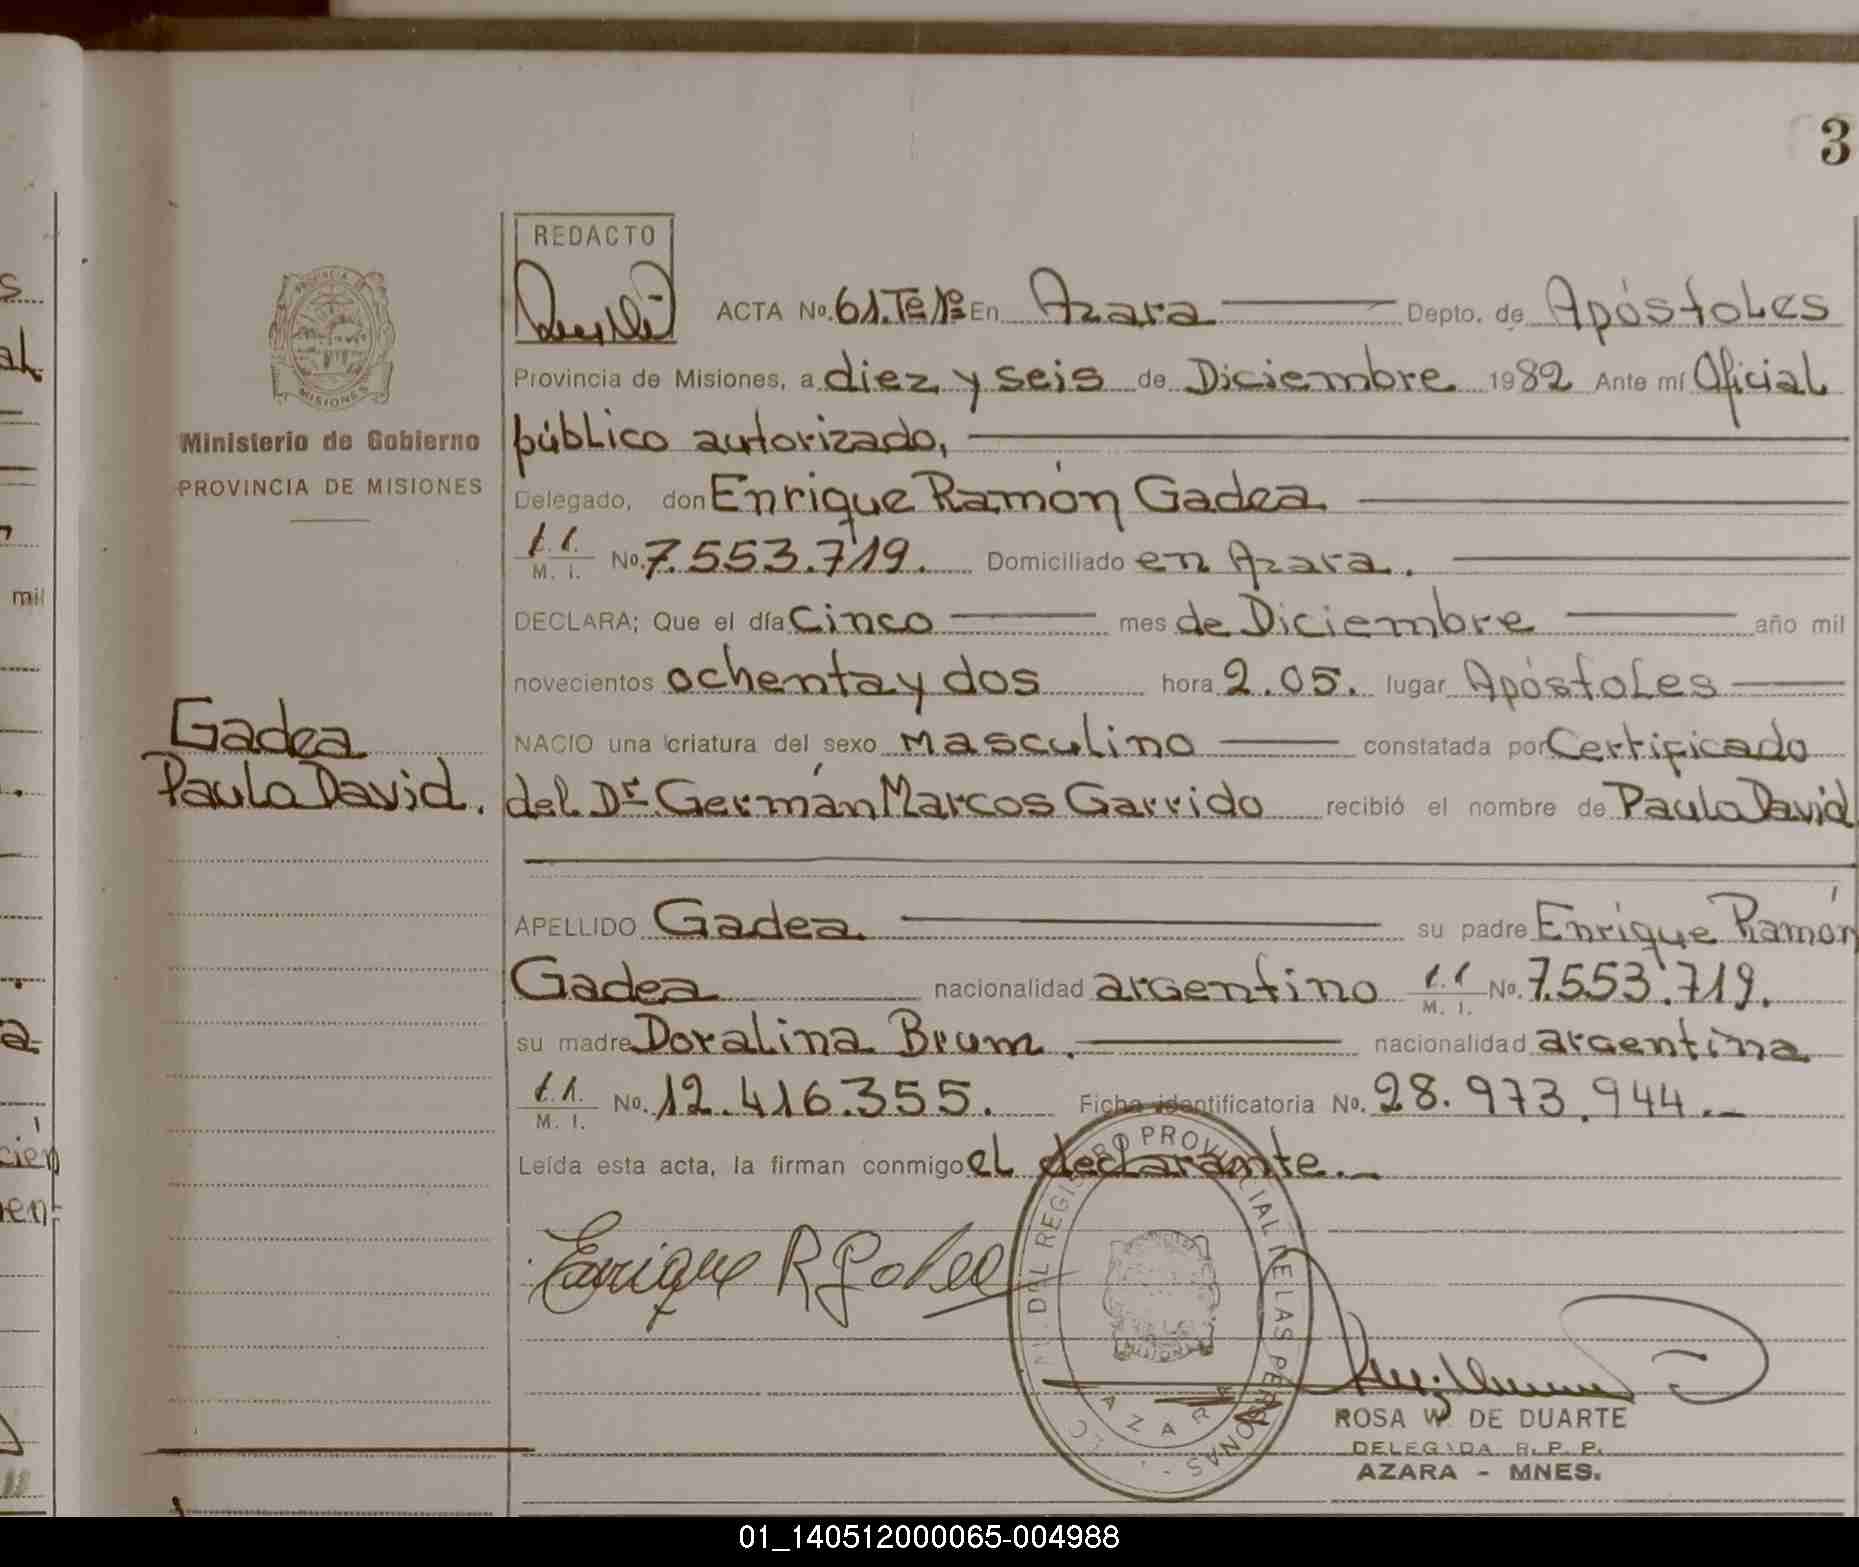 3
REDACTO
ACTA No. 61. Tº 1º En Azara Depto. de Apóstoles
Provincia de Misiones, a diez y seis de Diciembre 1982 Ante mí Oficial
público autorizado,
Delegado, don Enrique Ramón Gadea
M. I. No. 7.553.719. Domiciliado en Azara.
DECLARA; Que el día Cinco mes de Diciembre año mil
novecientos ochenta y dos hora 2.05. lugar Apóstoles
NACIO una criatura del sexo masculino constatada por Certificado
del Dr. Germán Marcos Garrido recibió el nombre de Paulo David
APELLIDO Gadea su padre Enrique Ramón
Gadea nacionalidad argentino M. I. No. 7.553.719.
su madre Doralina Brum. nacionalidad argentina
M. I. No. 12.416.355. Ficha identificatoria No. 28.973.944.-
Leída esta acta, la firman conmigo el declarante.-
Enrique R Gadea
PROVINCIA DE
MISIONES
Ministerio de Gobierno
PROVINCIA DE MISIONES
Gadea
Paulo David.
DEL REGISTRO PROVINCIAL DE LAS PERSONAS
AZARA
ROSA W. DE DUARTE
DELEGADA R. P. P.
AZARA - MNES.
mil
01_140512000065-004988